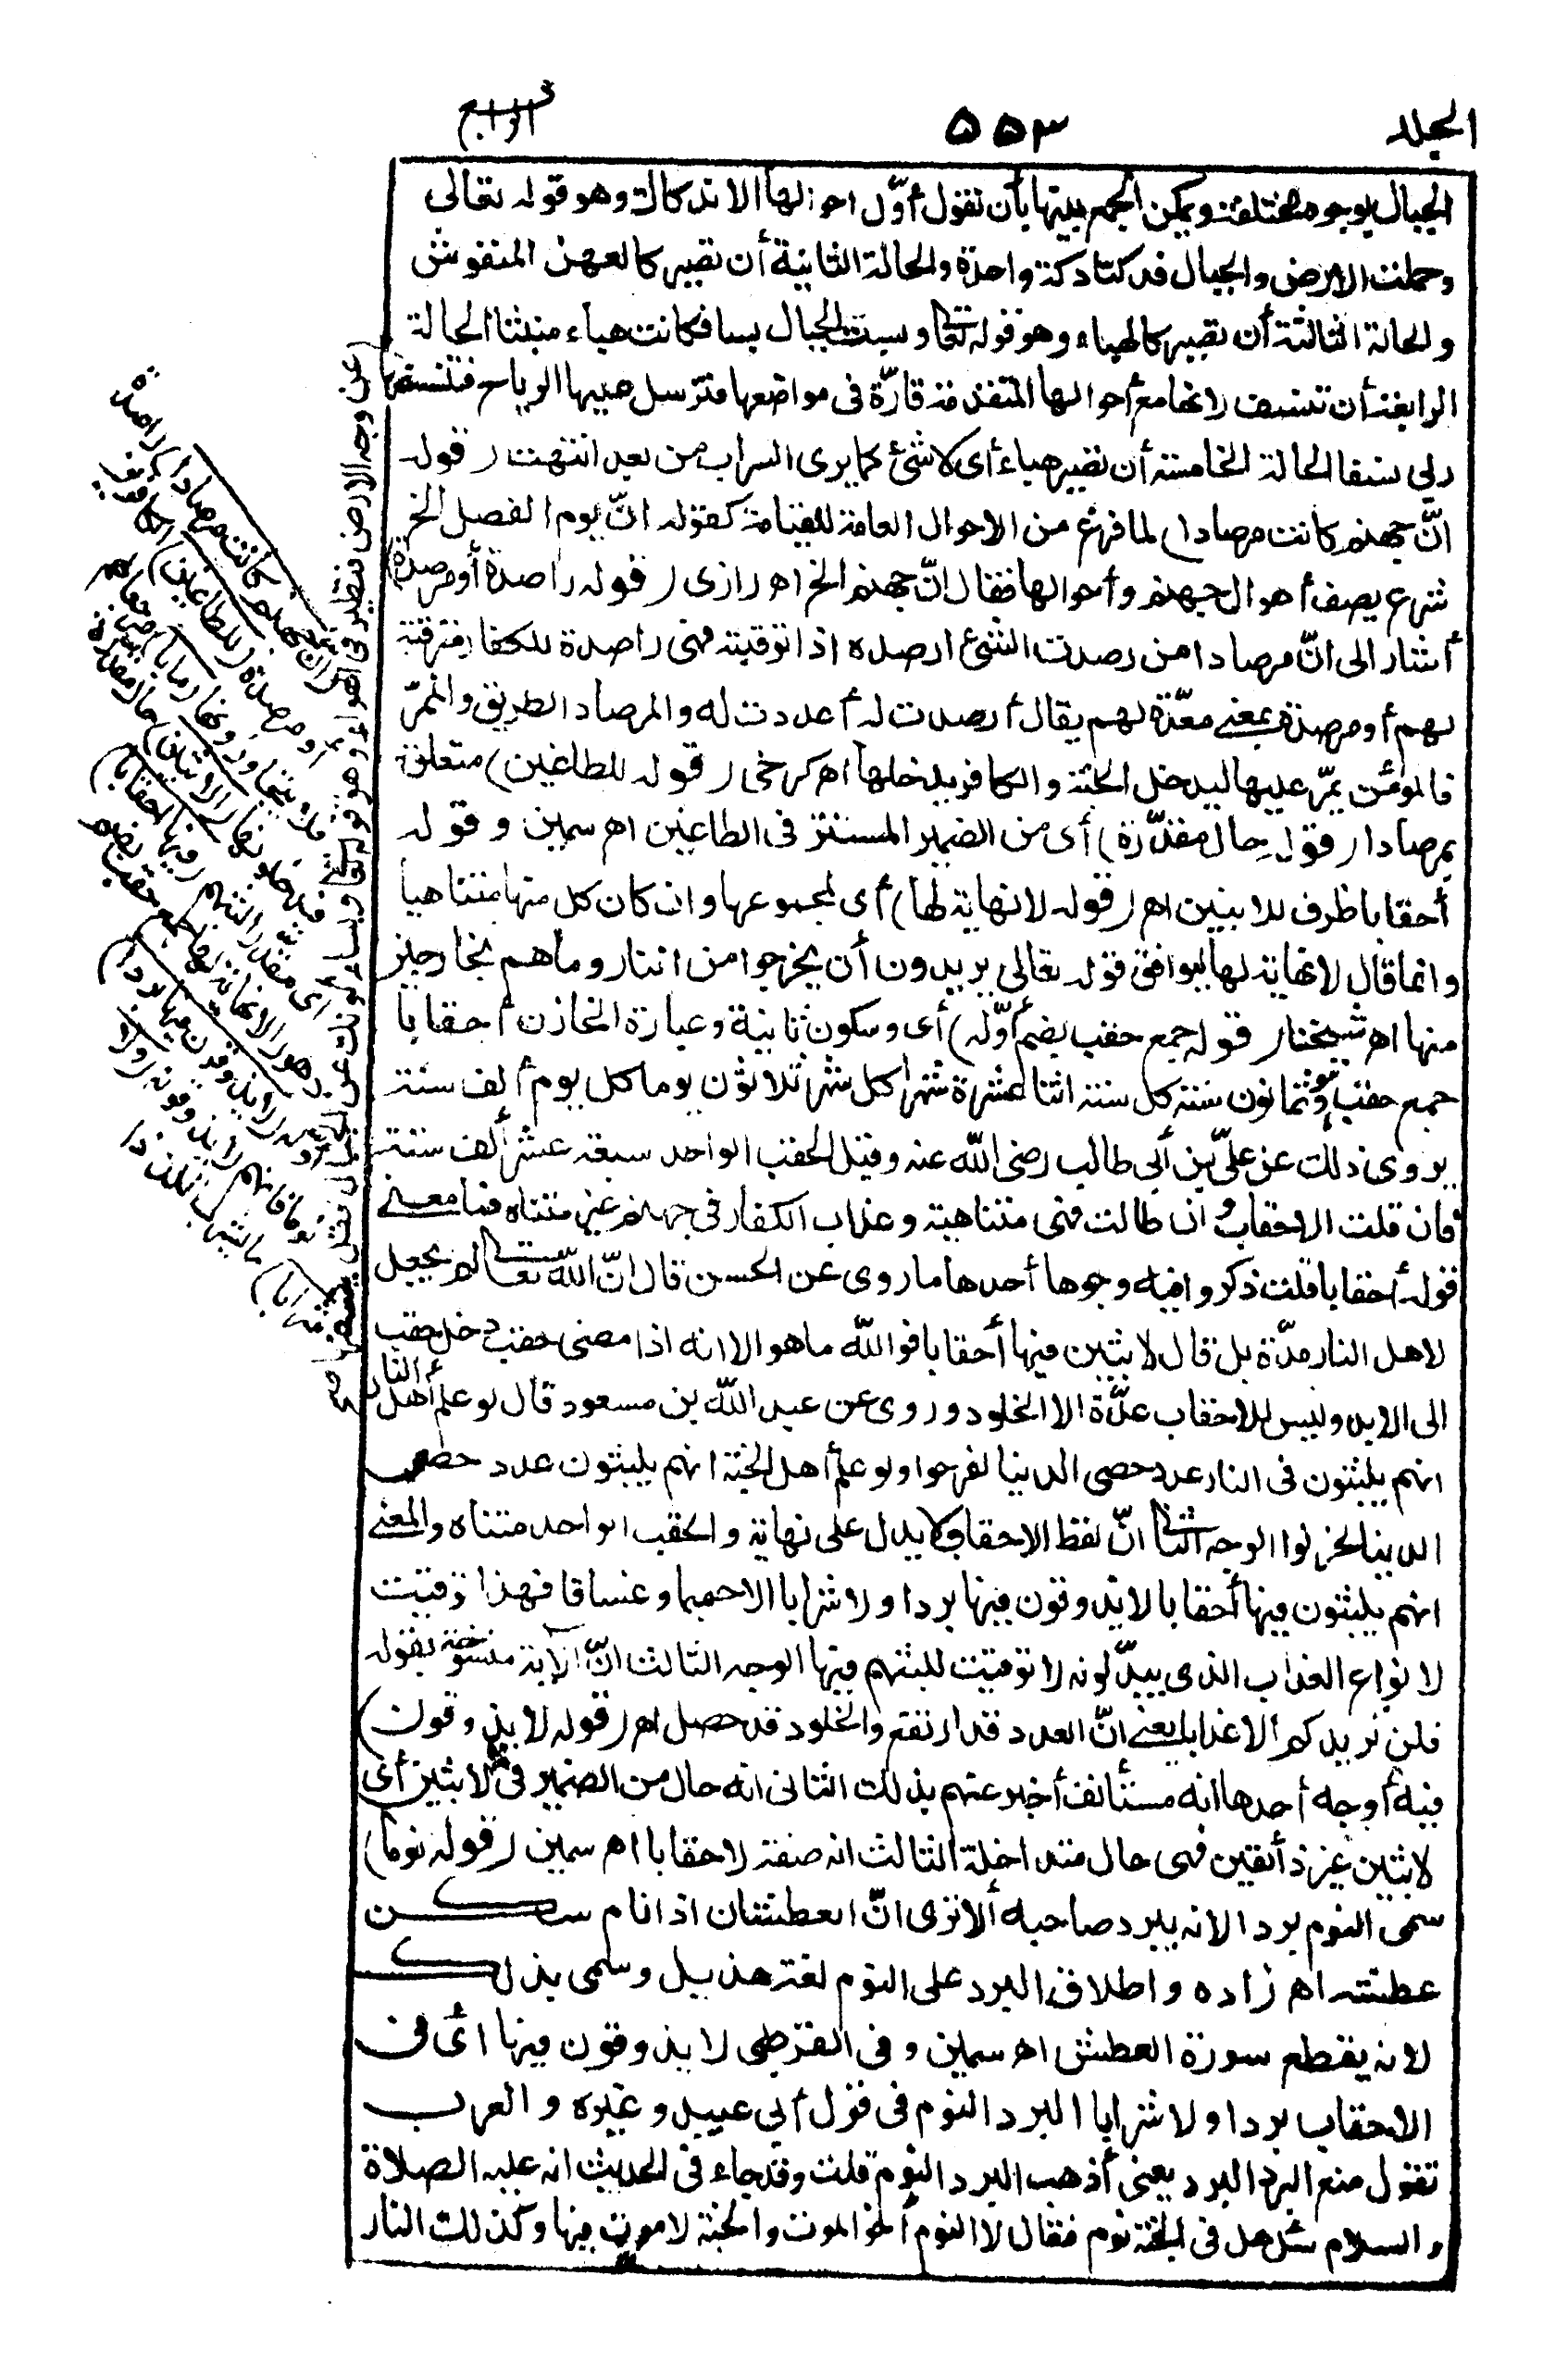 الجلد ٥٥٣ الرابع
الجبال بوجوه مختلفة ويمكن الجمع بينها بأن نقول أوّل احوالها الاندكاك وهو قوله تعالى
وحملت الارض والجبال فدكتا دكة واحدة والحالة الثانية أن تصير كالعهن المنفوش
والحالة الثالثة أن تصير كالهباء وهو قوله تعا وبست الجبال بسا فكانت هباء منبثا الحالة
الرابعة أن تنسف لانها مع أحوالها المتقدمة قارّة فى مواضعها فترسل عليها الرياح فتنسفها
ربى نسفا الحالة الخامسة أن تصير هباء أى لا شئ كما يرى السراب من بعد انتهت (قوله
انّ جهنم كانت مرصادا) لما فرغ من الاحوال العامة للقيامة كقوله انّ يوم الفصل الخ
شرع يصف أهوال جهنم وأحوالها فقال انّ جهنم الخ اه رازى (قوله راصدة أو مرصدة)
أشار الى انّ مرصادا من رصدت الشئ ارصده اذا ترقبته فهى راصدة للكفار مترقبة
لهم أو مرصدة بمعنى معدّة لهم يقال أرصدت له أعددت له والمرصاد الطريق والممرّ
فالمؤمن يمرّ عليها ليدخل الجنة والكافر يدخلها اه كرخى (قوله للطاغين) متعلق
بمرصادا (قوله حال مقدّرة) أى من الضمير المستتر فى الطاغين اه سمين وقوله
أحقابا ظرف للابثين اه (قوله لا نهاية لها) أى لمجموعها وان كان كل منها متناهيا
وانما قال لا نهاية لها ليوافق قوله تعالى يريدون أن يخرجوا من النار وما هم بخارجين
منها اه شيخنا (قوله جمع حقب بضم أوّله) أى وسكون ثانية وعبارة الخازن أحقابا
جمع حقب وهو ثمانون سنة كل سنة اثنا عشرة شهرا كل شهر ثلاثون يوما كل يوم ألف سنة
يروى ذلك عن علىّ بن أبى طالب رضى الله عنه وقيل الحقب الواحد سبعة عشر ألف سنة
فان قلت الاحقاب وان طالت فهى متناهية وعذاب الكفار فى جهنم غير متناه فما معنى
قوله أحقابا قلت ذكروا فيه وجوها أحدها ما روى عن الحسن قال انّ الله تعا لم يجعل
لاهل النار مدّة بل قال لابثين فيها أحقابا فوالله ما هو الا انه اذا مضى حقب دخل حقب
الى الابد وليس للاحقاب عدّة الا الخلود وروى عن عبد الله بن مسعود قال لو علم أهل النار
انهم يلبثون فى النار عدد حصى الدنيا لفرحوا ولو علم أهل الجنة انهم يلبثون عدد حصى
الدنيا لحزنوا الوجه الثا انّ لفظ الاحقاب لا يدل على نهاية والحقب الواحد متناه والمعنى
انهم يلبثون فيها أحقابا لا يذوقون فيها بردا ولا شرابا الا حميما وغساقا فهذا توقيت
لانواع العذاب الذى يبدّلونه لا توقيت للبثهم فيها الوجه الثالث انّ الآية منسوخة بقوله
فلن نزيدكم الا عذابا يعنى انّ العدد قد ارتفع والخلود قد حصل اه (قوله لا يذوقون)
فيه أوجه أحدها انه مستأنف أخبر عنهم بذلك الثانى انه حال من الضمير فى لابثين أى
لابثين غير ذائقين فهى حال متداخلة الثالث انه صفة لاحقابا اه سمين (قوله نوما)
سمى النوم بردا لانه يبرد صاحبه ألا ترى انّ العطشان اذا نام سكن
عطشه اه زاده واطلاق البرد على النوم لغة هذيل وسمى بذلك
لانه يقطع سورة العطش اه سمين وفى القرطبى لا يذوقون فيها أى فى
الاحقاب بردا ولا شرابا البرد النوم فى قول أبى عبيد وغيره والعرب
تقول منع البرد البرد يعنى أذهب البرد النوم قلت وقد جاء فى الحديث انه عليه الصلاة
والسلام سئل هل فى الجنة نوم فقال لا النوم أخو الموت والجنة لا موت فيها وكذلك النار
عن وجه الارض نتطير فى الهواء وهو قوله تعا ويسألونك عن الجبال فقل ينسفها
(ان جهنم كانت مرصادا) راصدة
أو مرصدة (للطاغين) الكافرين
فلا يتجاوزونها (مآبا) مرجعا لهم
فيدخلونها (لابثين) حال مقدرة
أى مقدرا لبثهم (فيها أحقابا)
لا نهاية لها جمع حقب بضم
أوله (لا يذوقون فيها بردا)
نوما فانهم لا يذوقونه (ولا
شرابا) ما يشرب تلذذا